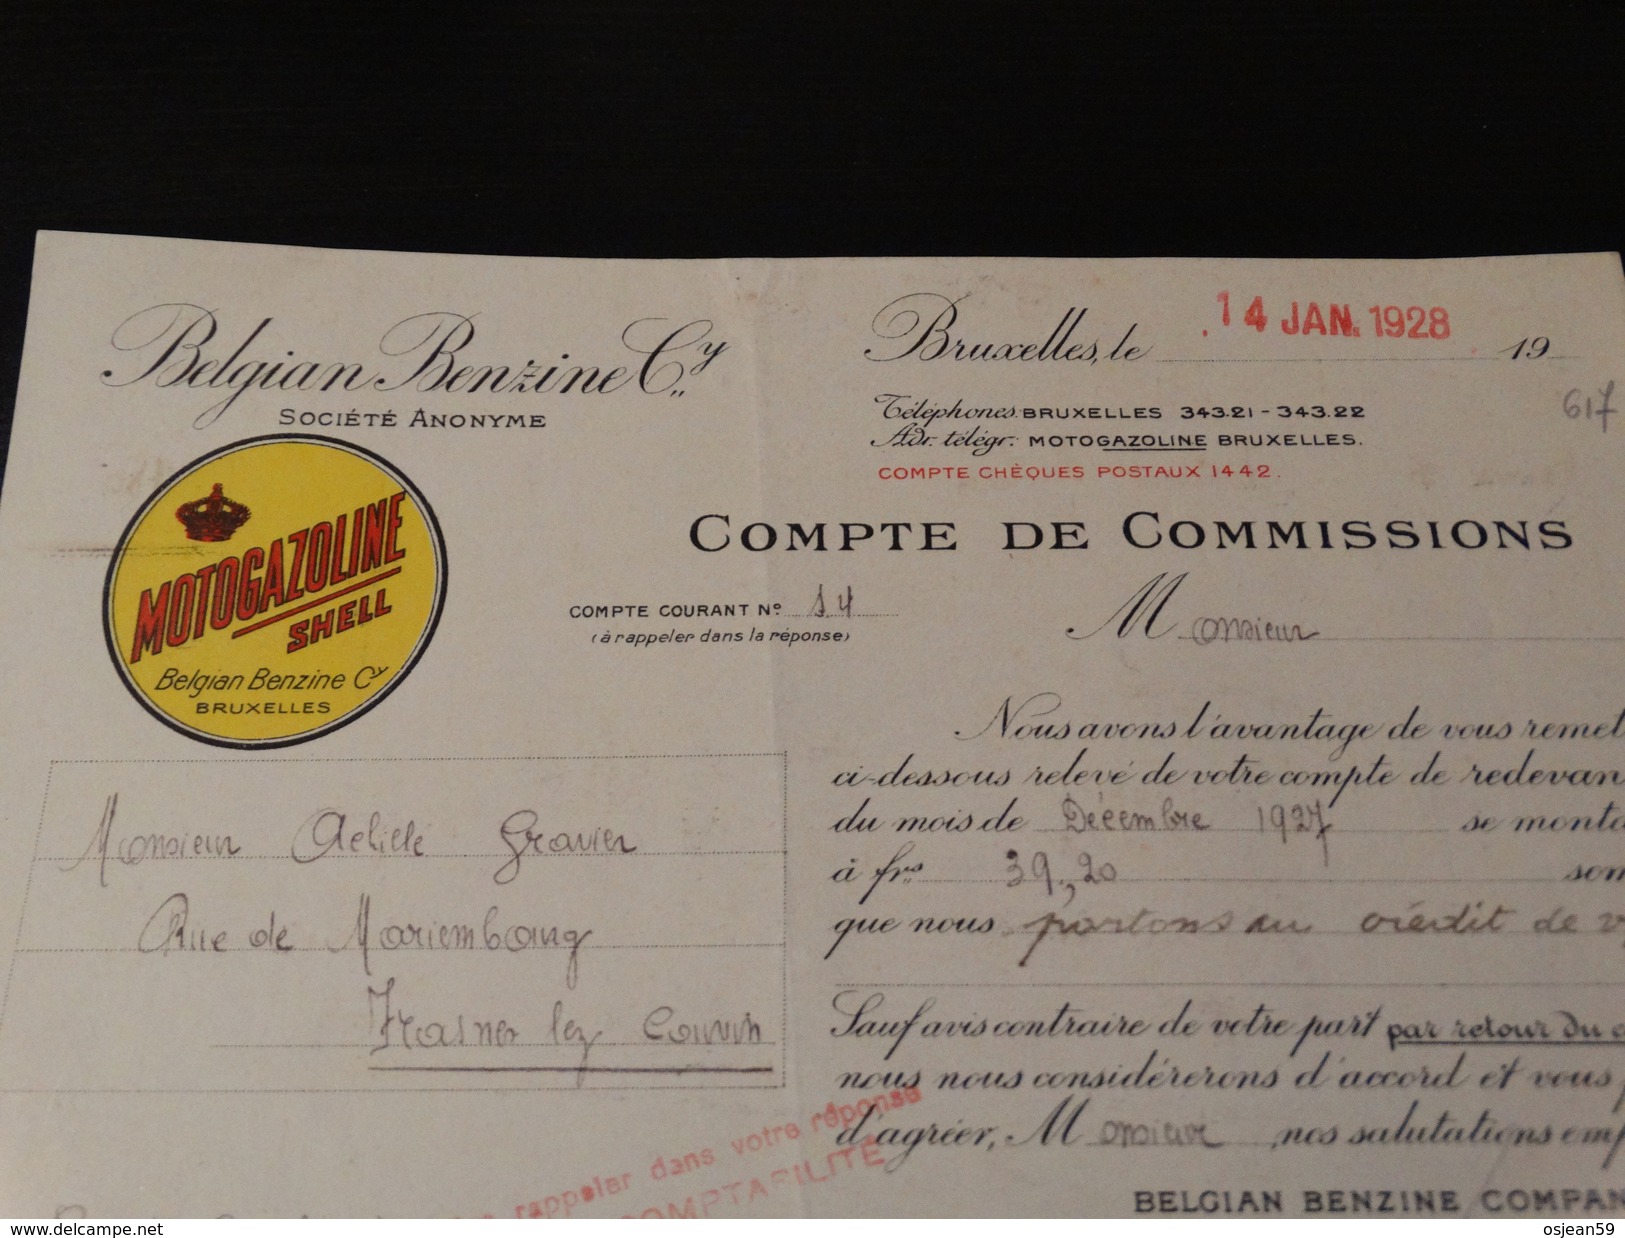 Belgian Benzine Cy.
SOCIÉTÉ ANONYME
MOTOGAZOLINE
SHELL
Belgian Benzine Cy
BRUXELLES
Bruxelles, le 14 JAN. 1928 19
Téléphones: BRUXELLES 343.21 - 343.22
Adr. télégr.: MOTOGAZOLINE BRUXELLES.
COMPTE CHÈQUES POSTAUX 1442.
617
COMPTE DE COMMISSIONS
COMPTE COURANT No 14
(à rappeler dans la réponse)
Monsieur
Monsieur Achille Gravier
Rue de Mariembourg
Frasnes lez Couvin
Nous avons l'avantage de vous remet
ci-dessous relevé de votre compte de redevan
du mois de Décembre 1927 se monta
à frs 39,20 som
que nous portons au crédit de v
Sauf avis contraire de votre part par retour du c
nous nous considérerons d'accord et vous
d'agréer, Monsieur, nos salutations emp
BELGIAN BENZINE COMPAN
rappeler dans votre réponse
COMPTABILITÉ
www.delcampe.net
osjean59